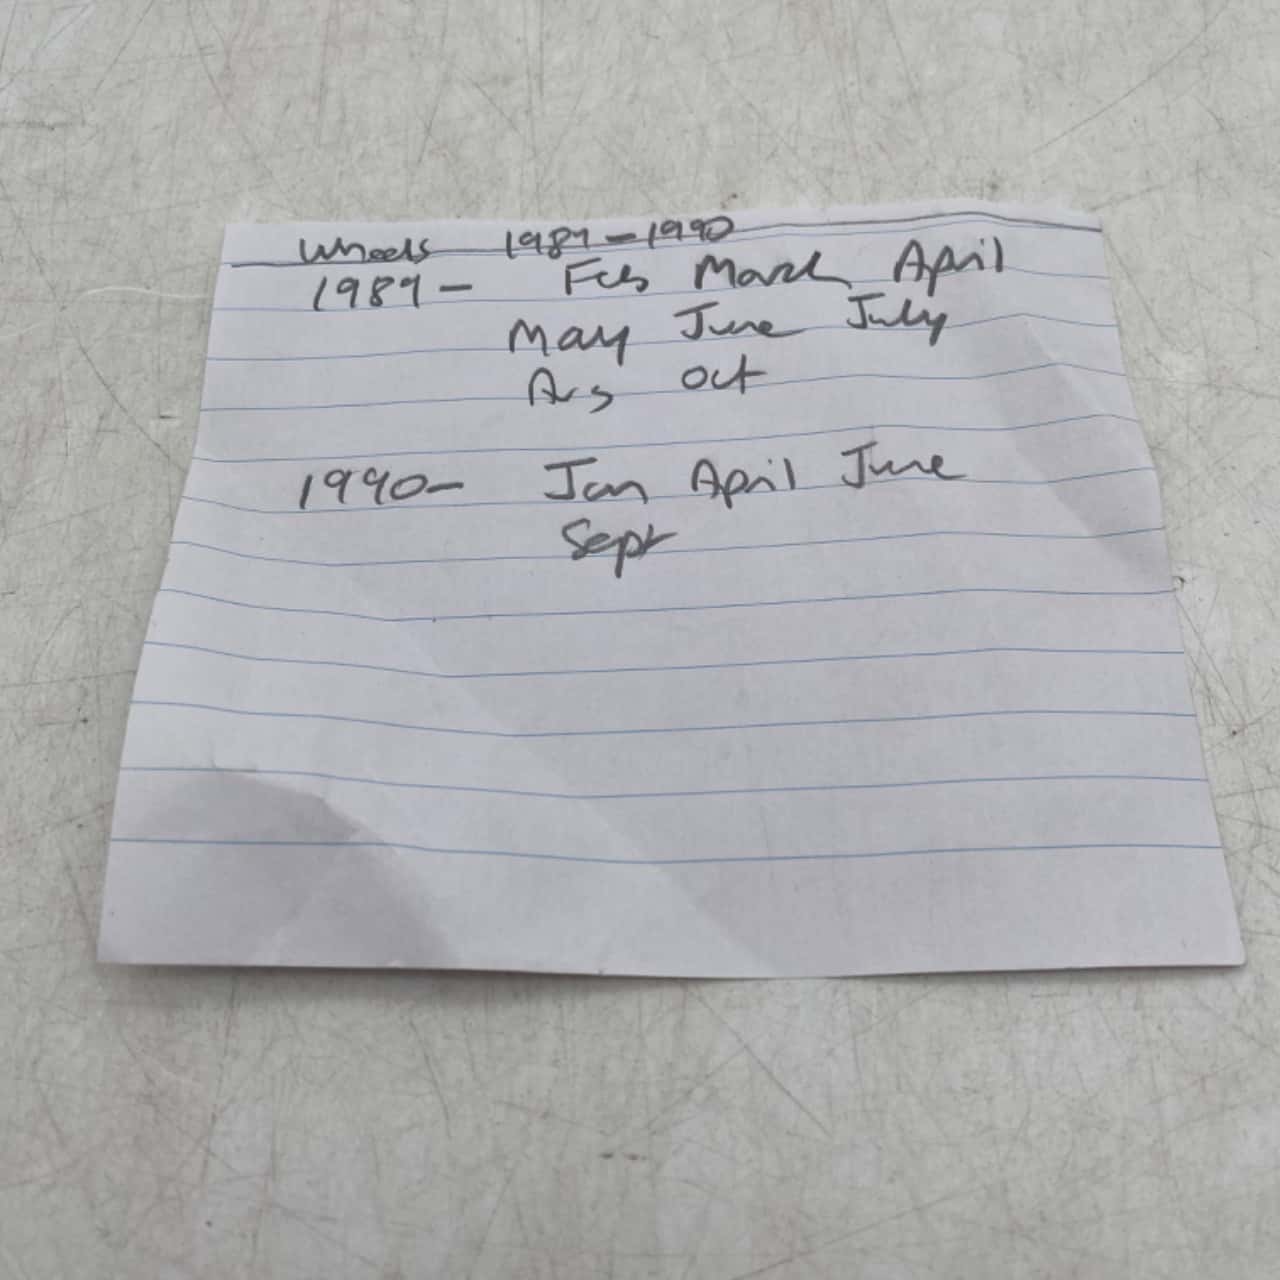 Wheels 1989-1990
1989- Feb March April
May June July
Aug Oct
1990- Jan April June
Sept